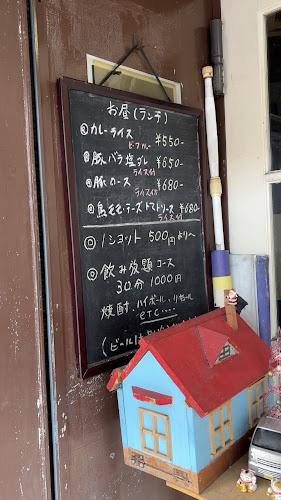 お昼(ランチ)
◎カレーライス ¥550-
ビーフカレー
◎豚バラ塩ダレ ¥650-
ライス付
◎豚ロース ¥680-
ライス付
チーズトマトソース ¥680-
ライス付
◎1ショット 500円より〜
◎飲み放題コース
30分 1000円
焼酎、ハイボール、
etc....
(ビールは